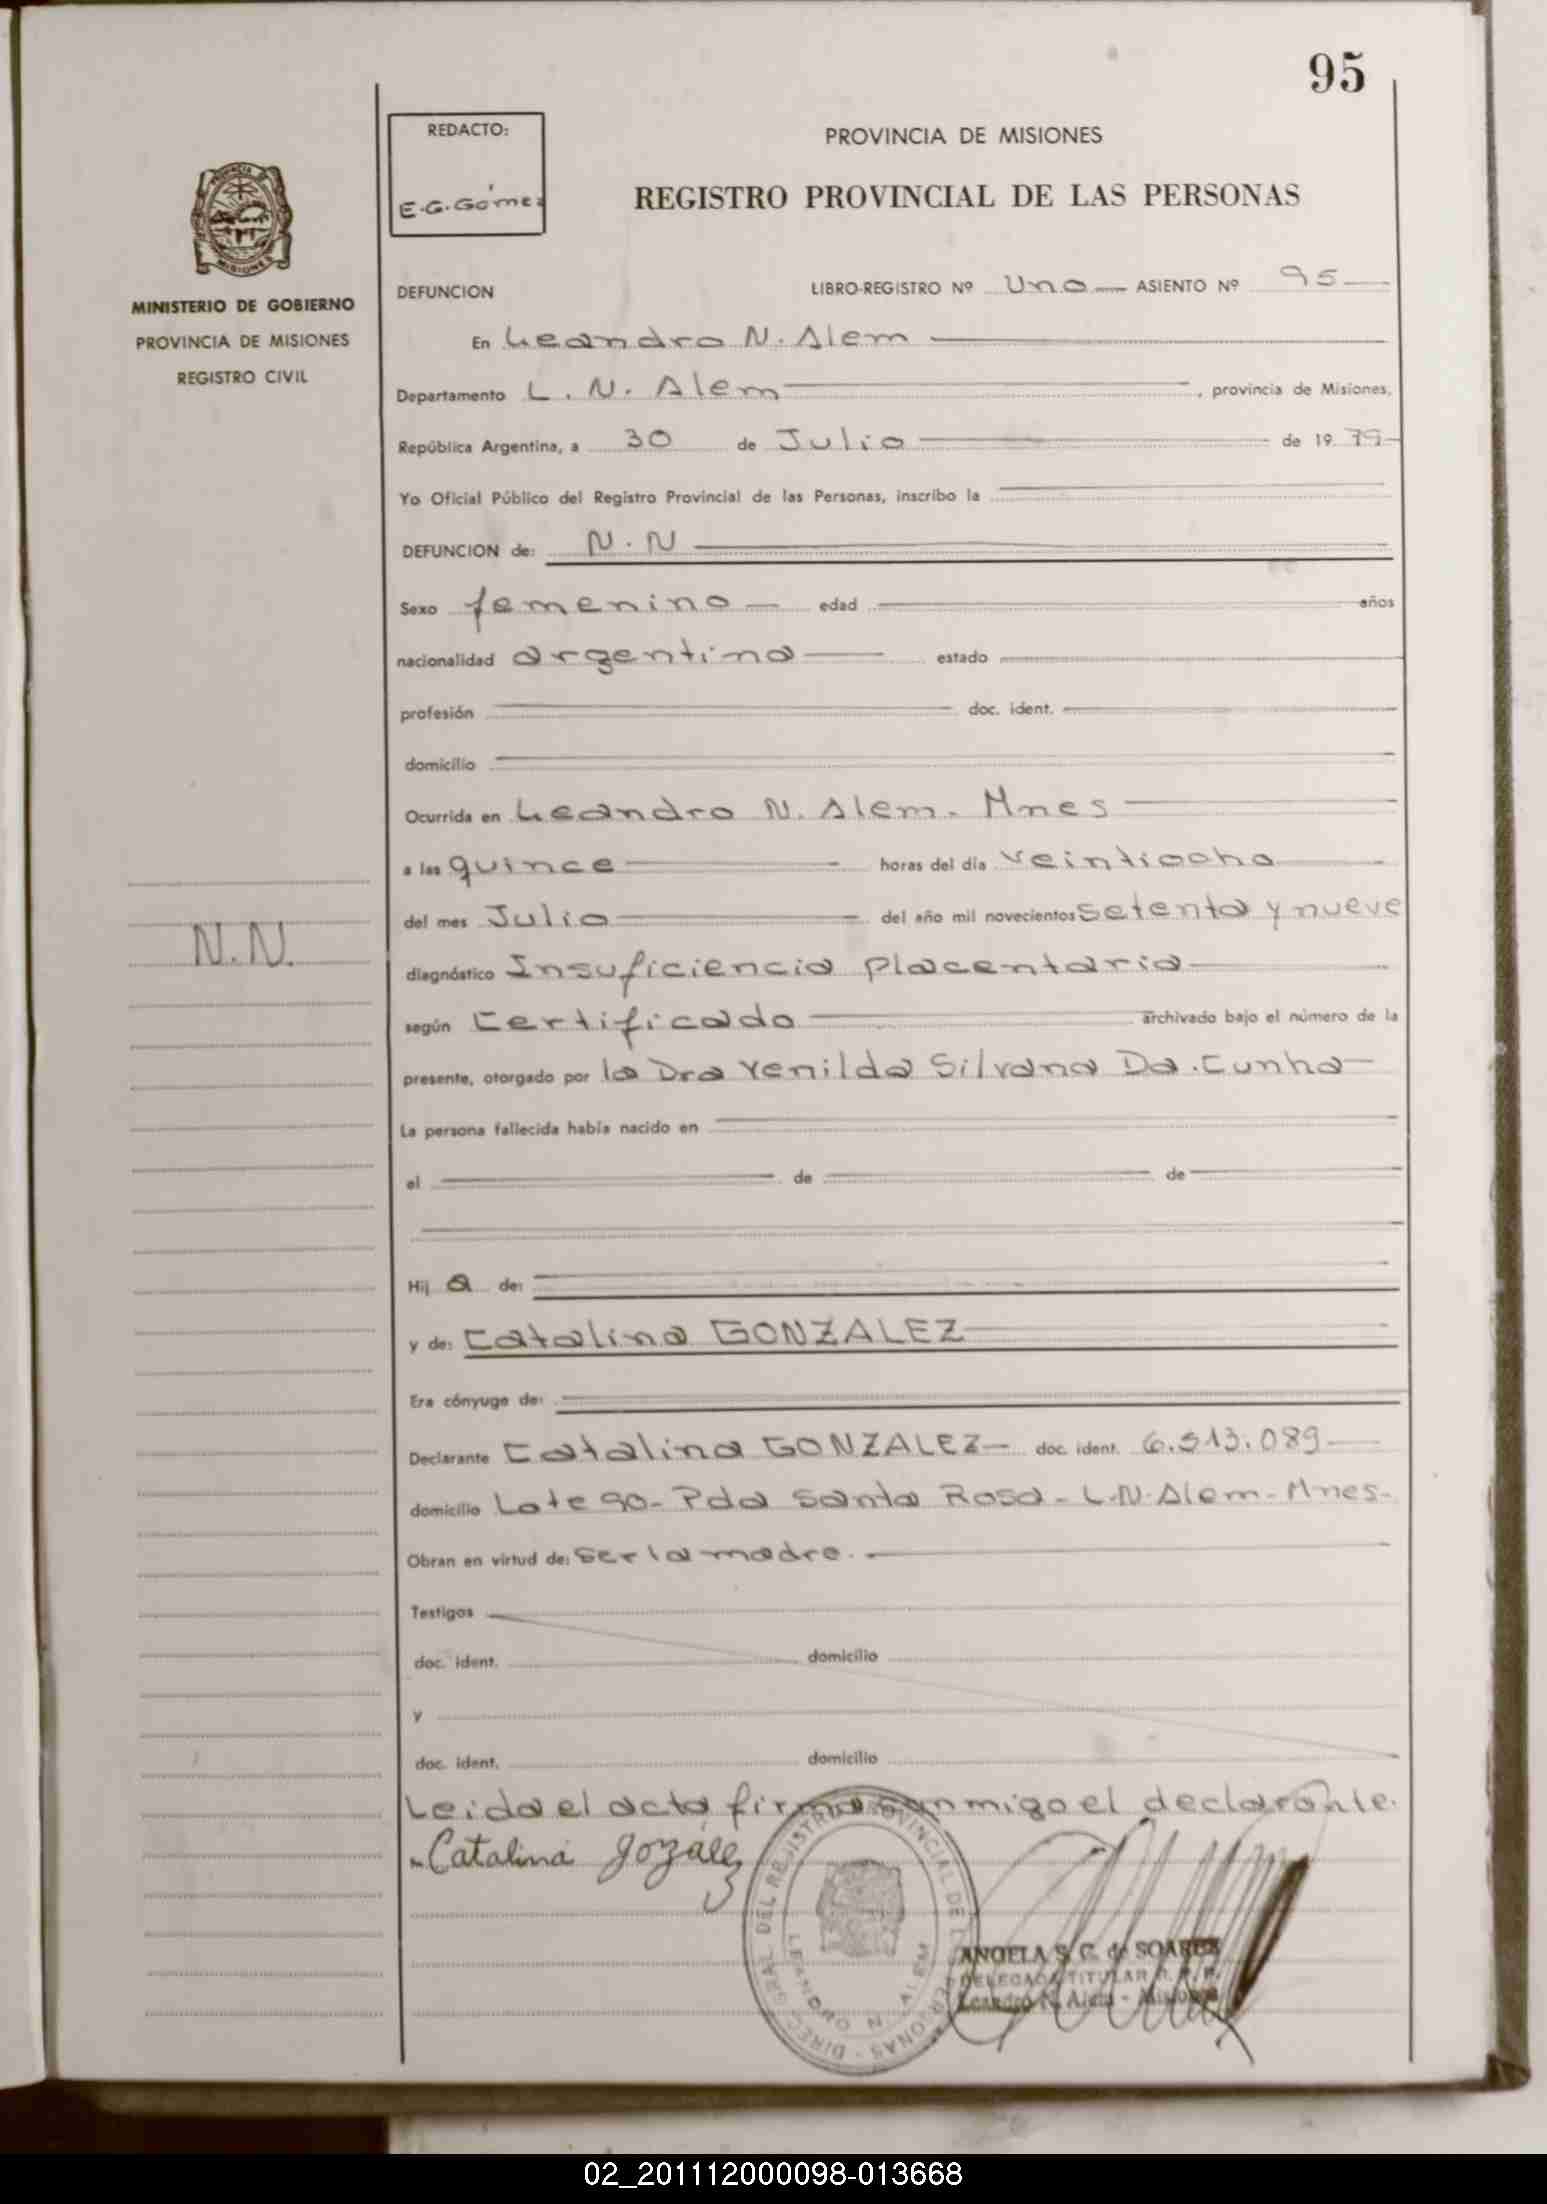 95
REDACTO:
E.G. Gómez
PROVINCIA DE MISIONES
REGISTRO PROVINCIAL DE LAS PERSONAS
PROVINCIA DE
MISIONES
MINISTERIO DE GOBIERNO
PROVINCIA DE MISIONES
REGISTRO CIVIL
DEFUNCION LIBRO-REGISTRO Nº Uno ASIENTO Nº 95
En Leandro N. Alem
Departamento L. N. Alem, provincia de Misiones,
República Argentina, a 30 de Julio de 1979
Yo Oficial Público del Registro Provincial de las Personas, inscribo la
DEFUNCION de: N.N
Sexo femenino edad años
nacionalidad argentina estado
profesión doc. ident.
domicilio
Ocurrida en Leandro N. Alem. Mnes
a las quince horas del día veintiocho
del mes Julio del año mil novecientos setenta y nueve
N.N.
diagnóstico Insuficiencia Placentaria
según Certificado archivado bajo el número de la
presente, otorgado por la Dra Yenilda Silvana Da. Cunha
La persona fallecida había nacido en
el de de
Hij a de:
y de: Catalina GONZALEZ
Era cónyuge de:
Declarante Catalina GONZALEZ doc. ident. 6.513.089
domicilio Lote 90- Pda Santa Rosa- L.N. Alem- Mnes-
Obran en virtud de: ser la madre.
Testigos
doc. ident. domicilio
y
doc. ident. domicilio
Leida el acta firma conmigo el declarante.
Catalina gozález
DIREC. GRAL. DEL REJISTRO PROVINCIAL DE L PERSONAS
LEANDRO N. ALEM
ANGELA S. C. de SOAREZ
DELEGADA TITULAR R. P. P.
Leandro N. Alem - Misiones
02_201112000098-013668